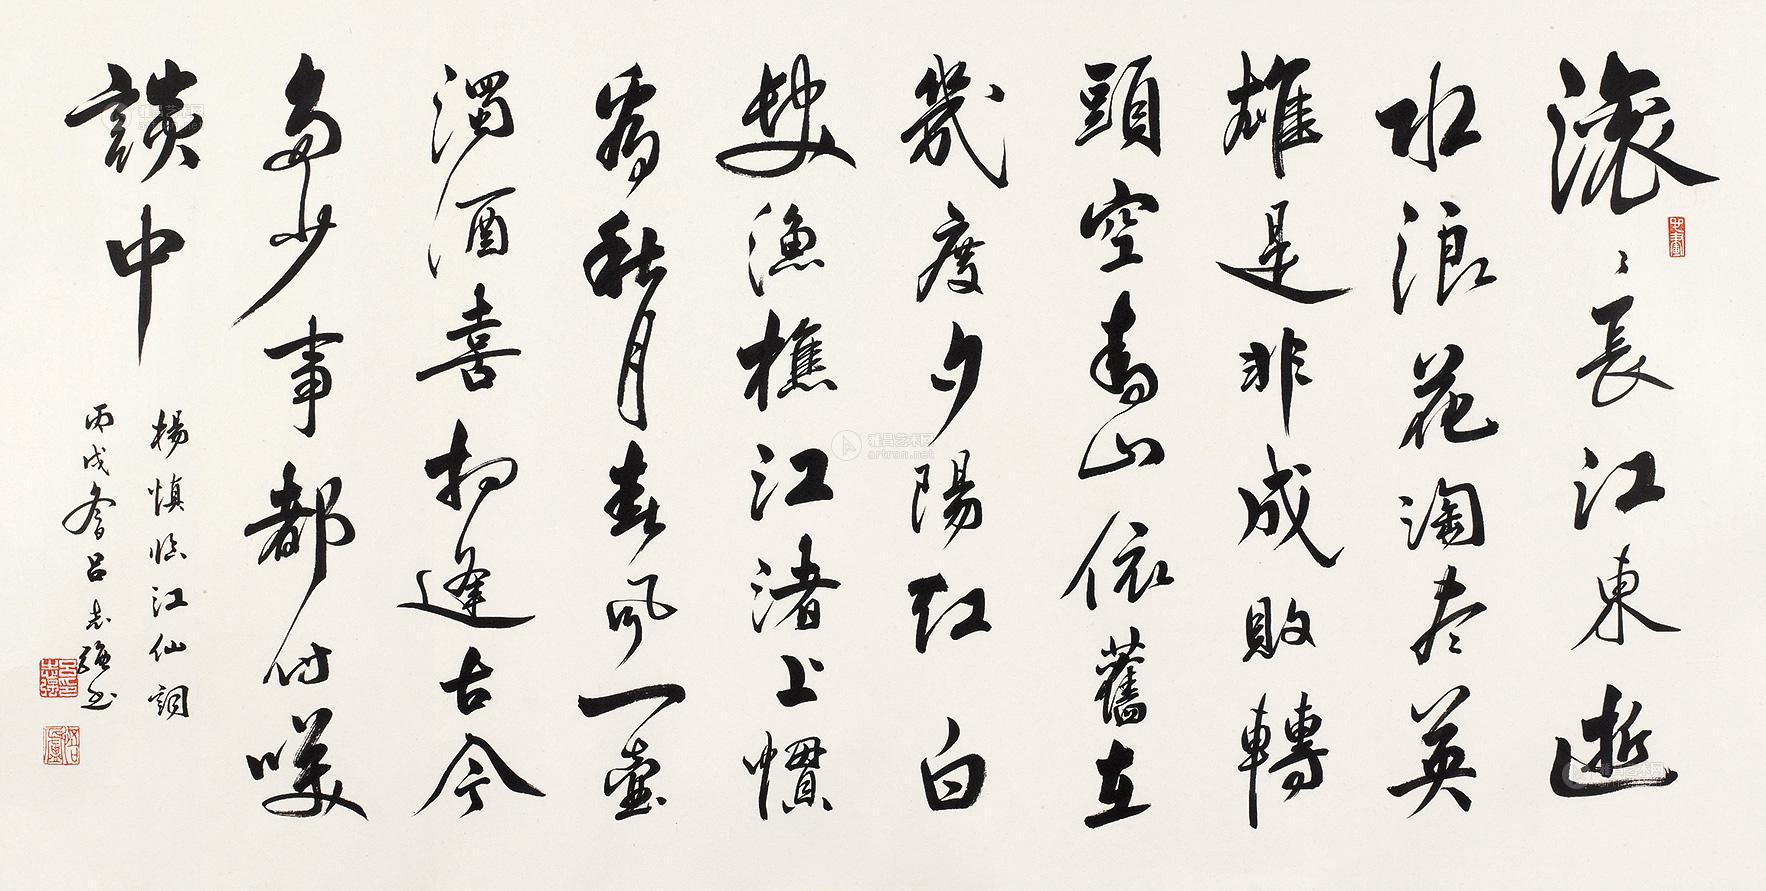 滚〻長江東逝
水浪花淘盡英
雄是非成敗轉
頭空青山依舊在
幾度夕陽紅白
髮漁樵江渚上慣
看秋月春風一壺
濁酒喜相逢古今
多少事都付笑
談中
楊慎臨江仙詞
丙戌冬月吕志强書
吕志强印
雅昌艺术网
artron.net